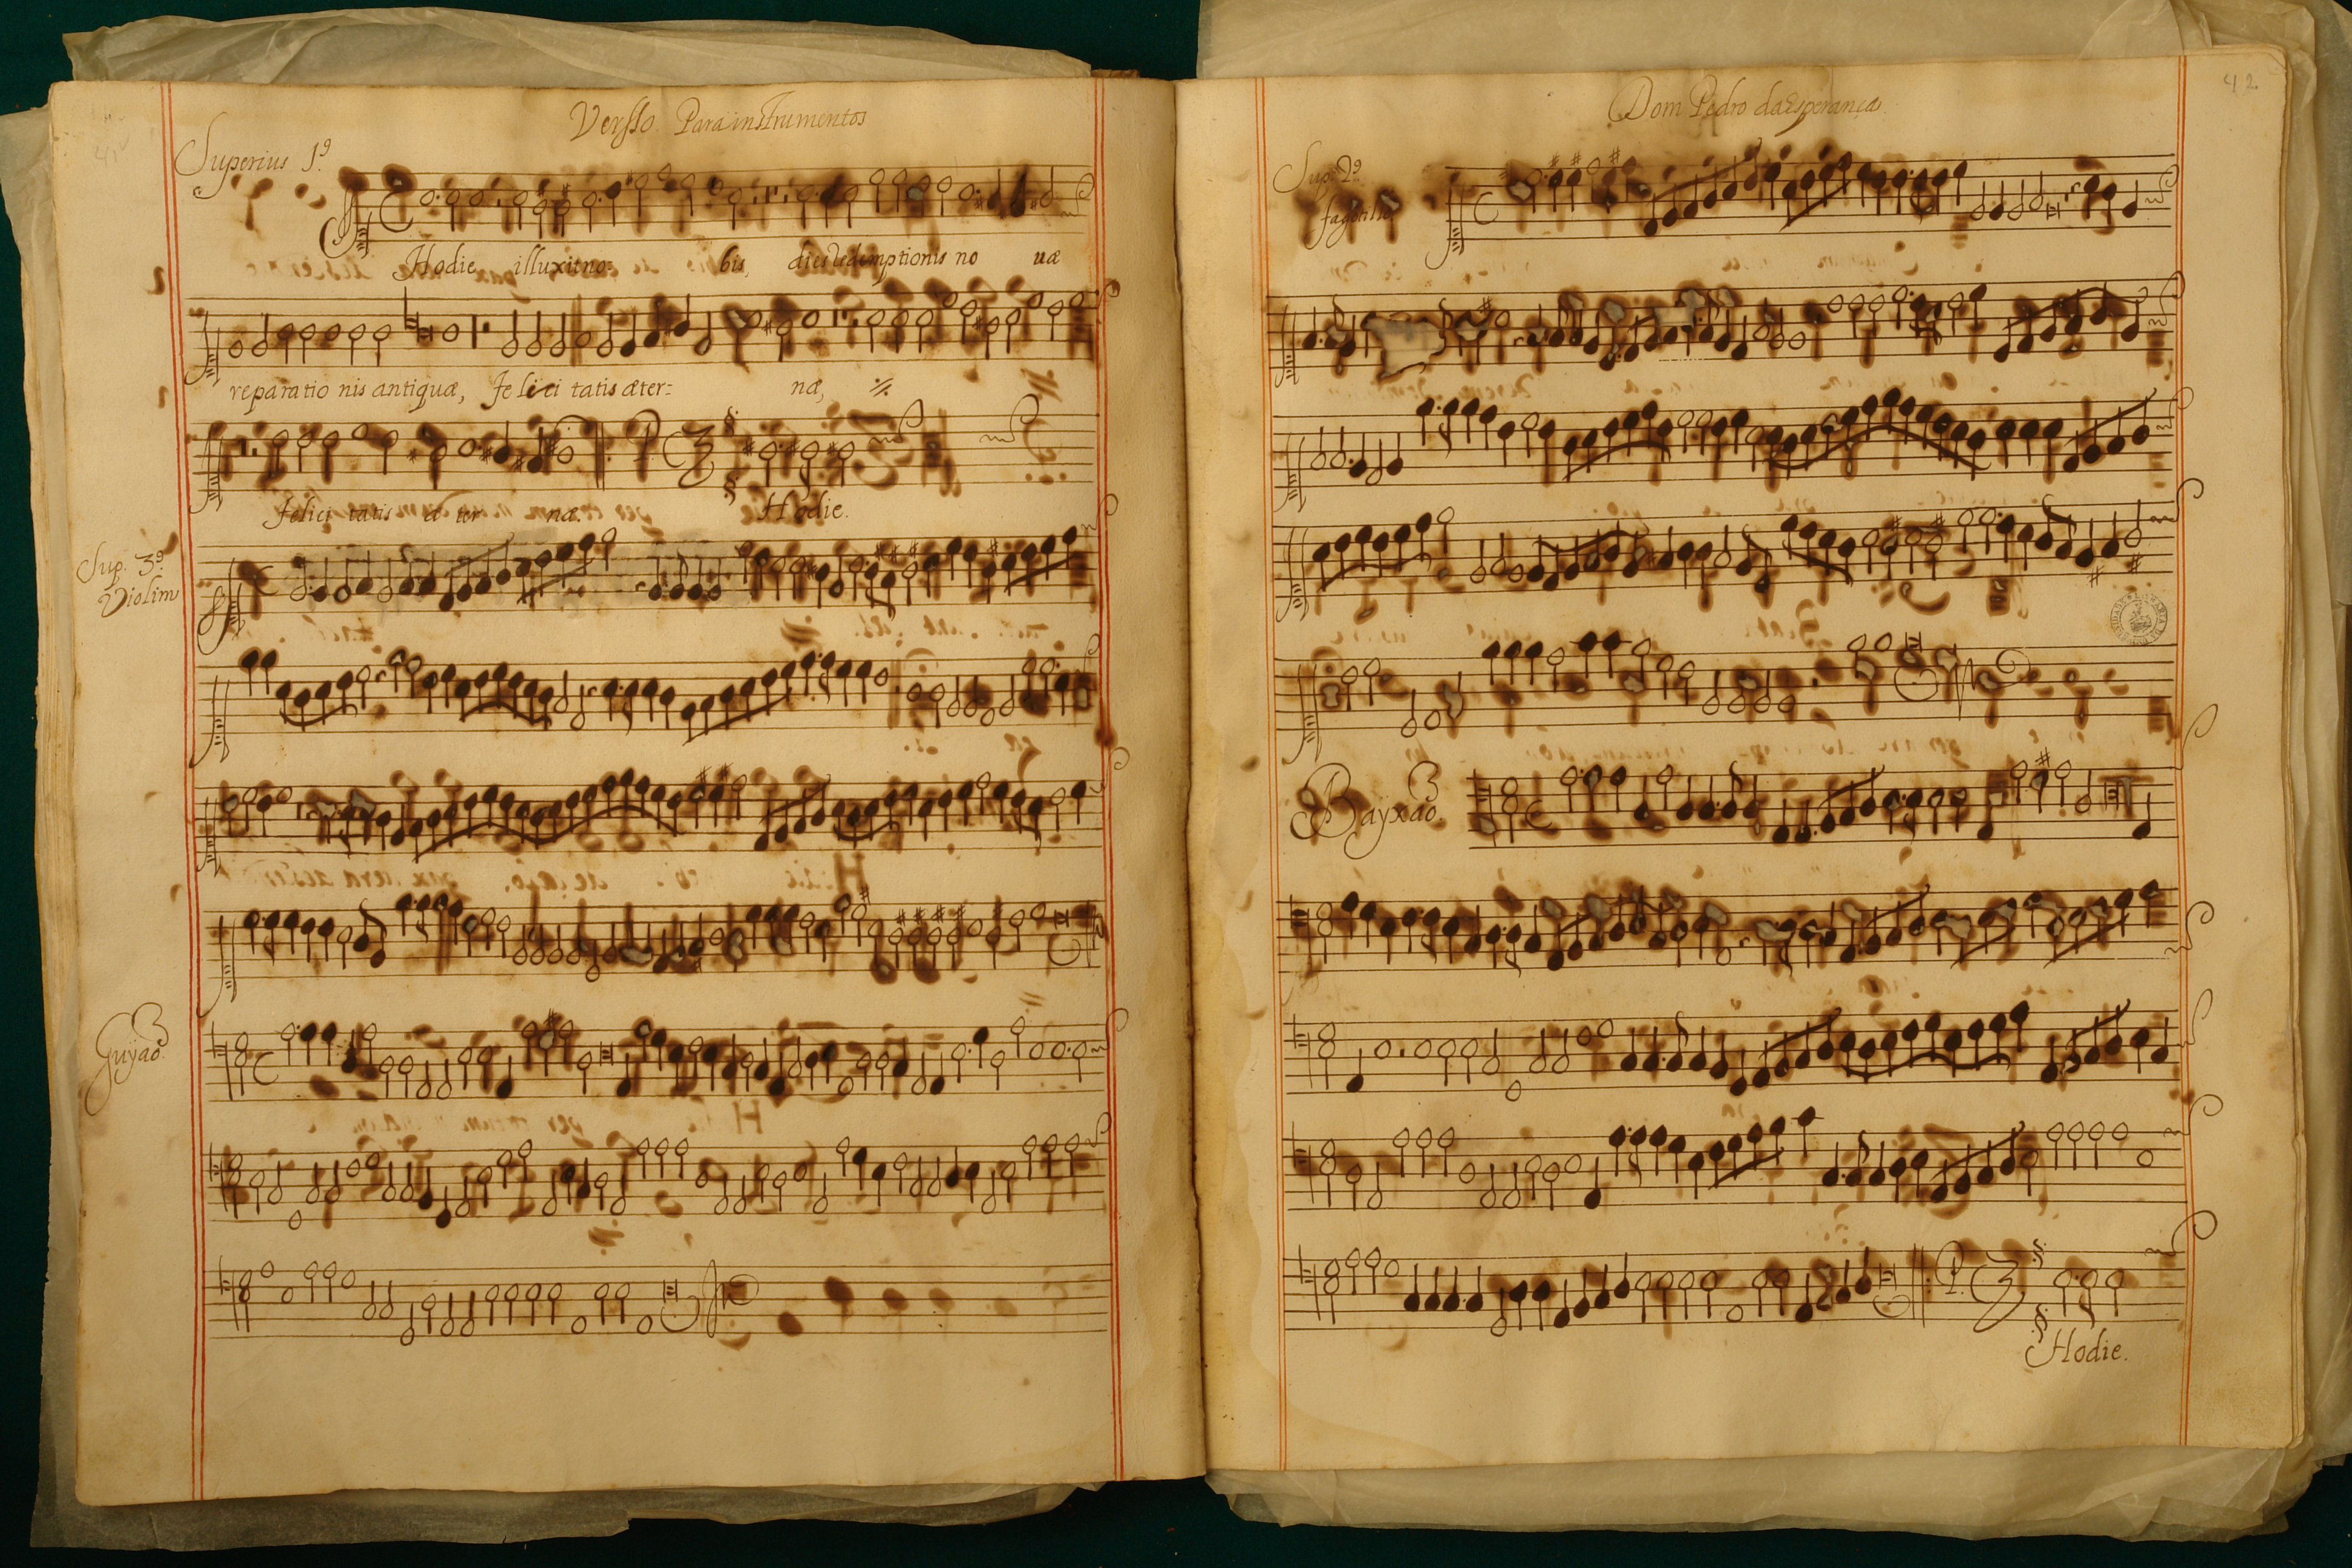 Versso. Para instrumentos
Superius 1º
Hodie illuxit no= bis, dies redemptionis no uæ
reparatio nis antiquæ, fe li ci tatis æter= næ,
felici tatis æ ter næ. Hodie.
Sup. 3º
Violim
Guÿaõ.
Dom Pedro da Esperança.
42
Sup. 2º
fagotilho
Baÿxaõ.
P.
Hodie.